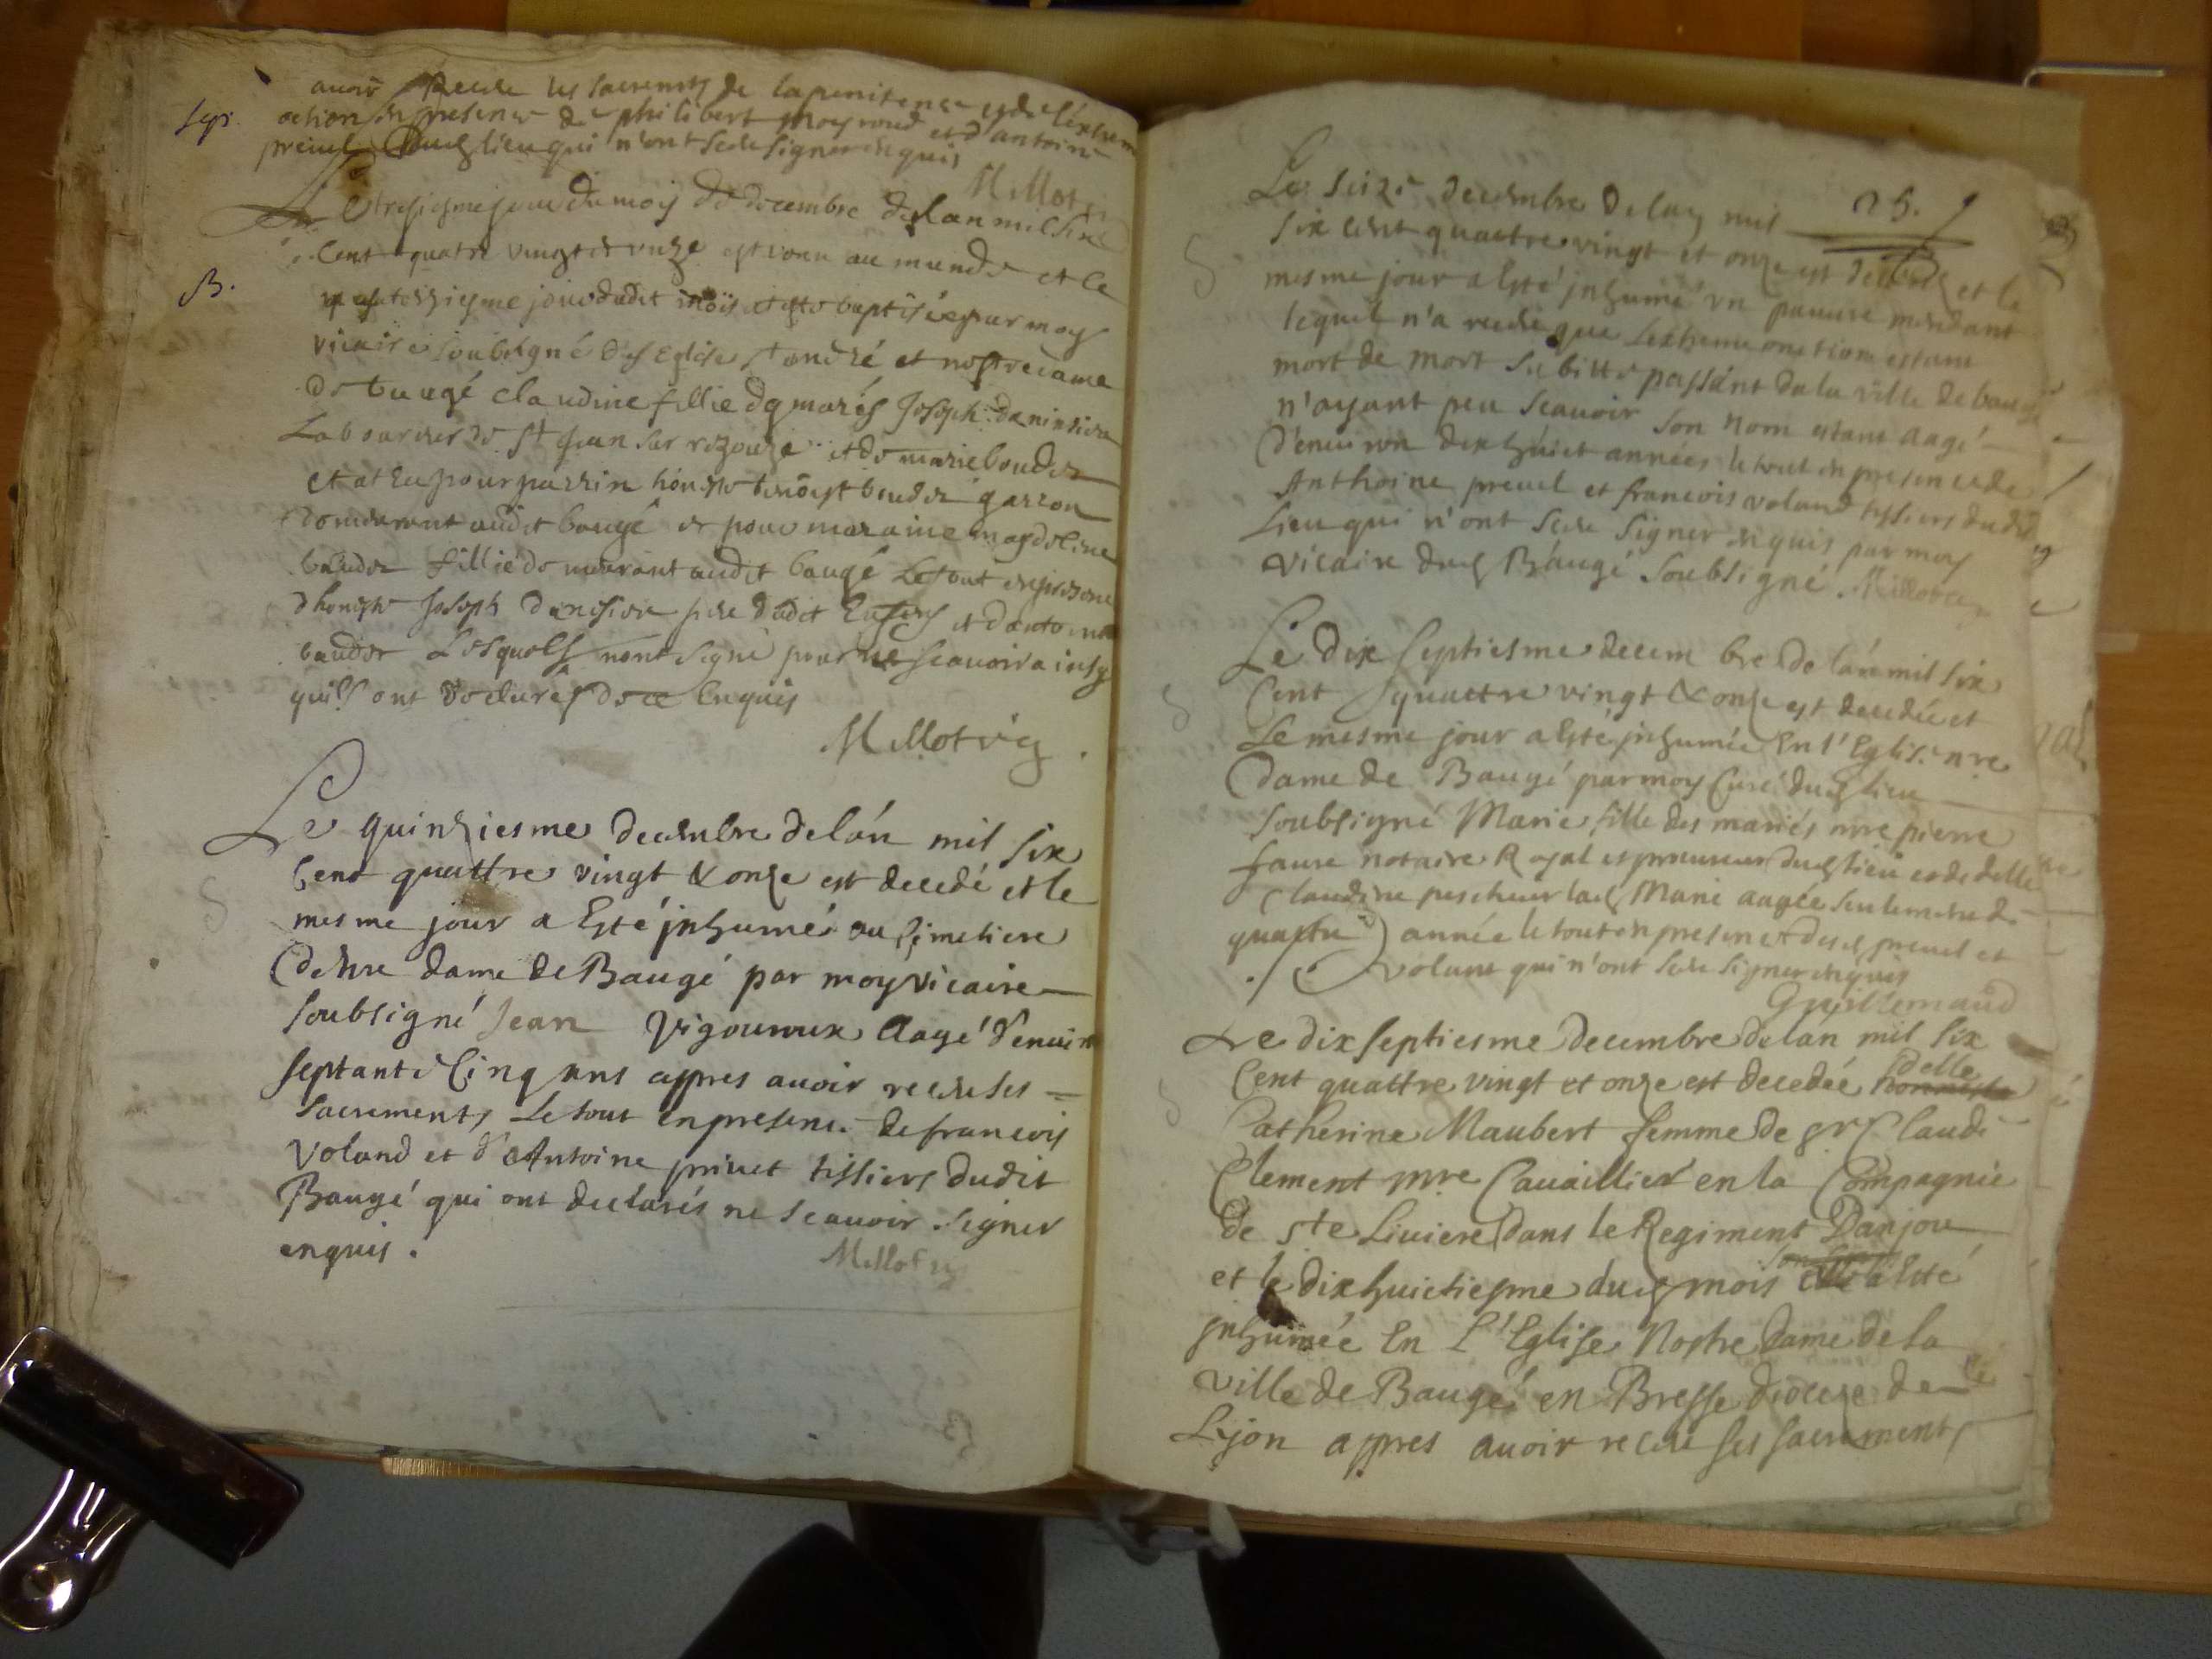 avoir Receu les sacrements de la penitence et de l'extreme
sep. onction en presence de philibert et d'antoine
preuel dud lieu qui n'ont sceu signer enquis
Millot vic
Le tresiesme jour du moys de decembre de lan mil six
Cent quatre vingt et unze est venu au munde et le
B. quatorziesme jour dudit mois a este baptisée par moy
vicaire soubsigné des Eglises st andré et nostre dame
de baugé claudine fillie des mariés Joseph
Laboureur de st Jean sur rezouze et de marie boudor
et at eu pour parrin honeste benoist boudor garson
demeurant audit baugé et pour maraine magdeleine
baudor fillie demeurant audit baugé Le tout en presence
d honeste Joseph pere dudit Enfens et d'antoine
baudor Lesquels nont signé pour ne scauoir ainsy
quils ont declarés de ce Enquis
Millot vic
Le quinziesme decembre de lán mil six
Cent quattre vingt & onze est decedé et le
mesme jour a Esté jnhumé au Cimetiere
de nre dame de Baugé par moy vicaire
soubsigné Jean Vigouroux Aagé d'enuiron
septante Cinq ans appres auoir receu ses
sacrements Le tout en presence de francois
Voland et d'Antoine preuel tissiers dudit
Baugé qui ont declarés ne scauoir signer
enquis.
Millot vic
25.
Le seize decembre de lan mil
six cent quattre vingt et onze est decedé et le
mesme jour a Esté jnhumé vn pauure mendiant
lequel n'a receu que Lextreme onction estant
mort de mort subitte passant da la ville de baugé
n'ayant peu scauoir son nom estant aagé
d'enuiron dix huict années le tout en presence de
Anthoine preuel et francois voland tissiers dudit
Lieu qui n'ont sceu signer enquis par moy
vicaire dud Baugé soubsigné. Millot vic
Le dix septiesme decembre de lán mil six
Cent quattre vingt & onze est decedée et
Le mesme jour a Esté jnhumée En l'Eglise nre
Dame de Baugé par moy Curé dud lieu
soubsigné Marie fille des mariés mre pierre
faure notaire Royal et procureur dud lieu et de delle
Claudine pescheur lad Marie aagée seulement de
quattre année le tout en presence desd preuel et
volant qui n'ont sceu signer enquis
Guillemaud
Le dix septiesme decembre de lan mil six
Cent quattre vingt et onze est decedée delle
Catherine Maubert femme de sr Claude
Clement mre Cauaillier en la Compagnie
de ste Liuiere dans le Regiment Danjou
et le dix huictiesme dud mois a Esté
jnhumée En L'Eglise Nostre Dame de la
ville de Baugé en Bresse diocese de
Lijon appres auoir receu ses sacrements